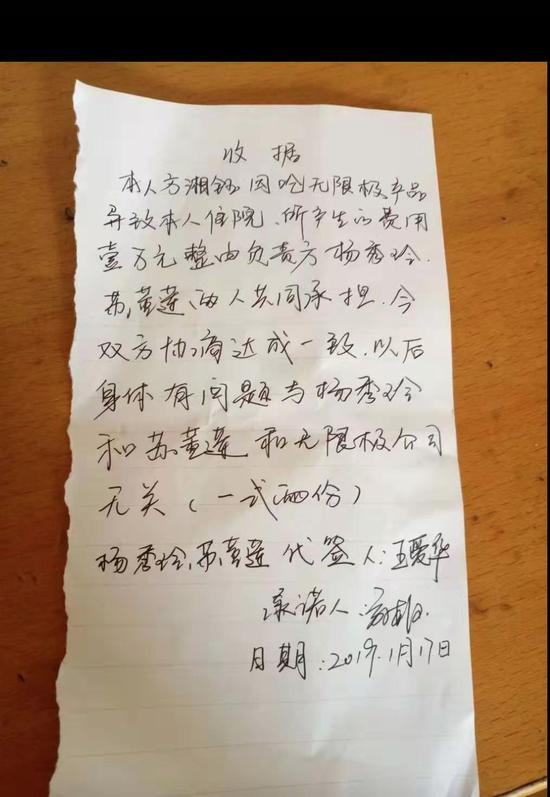 收据
本人方湘钰因吃无限极产品
导致本人住院、所产生的费用
壹万元整由负责方杨秀玲、
苏黄莲、两人共同承担、今
双方协商达成一致、以后
身体有问题与杨秀玲
和苏黄莲和无限极公司
无关(一式两份)
杨秀玲、苏黄莲代签人:王爱华
承诺人:
日期:2019.1月17日